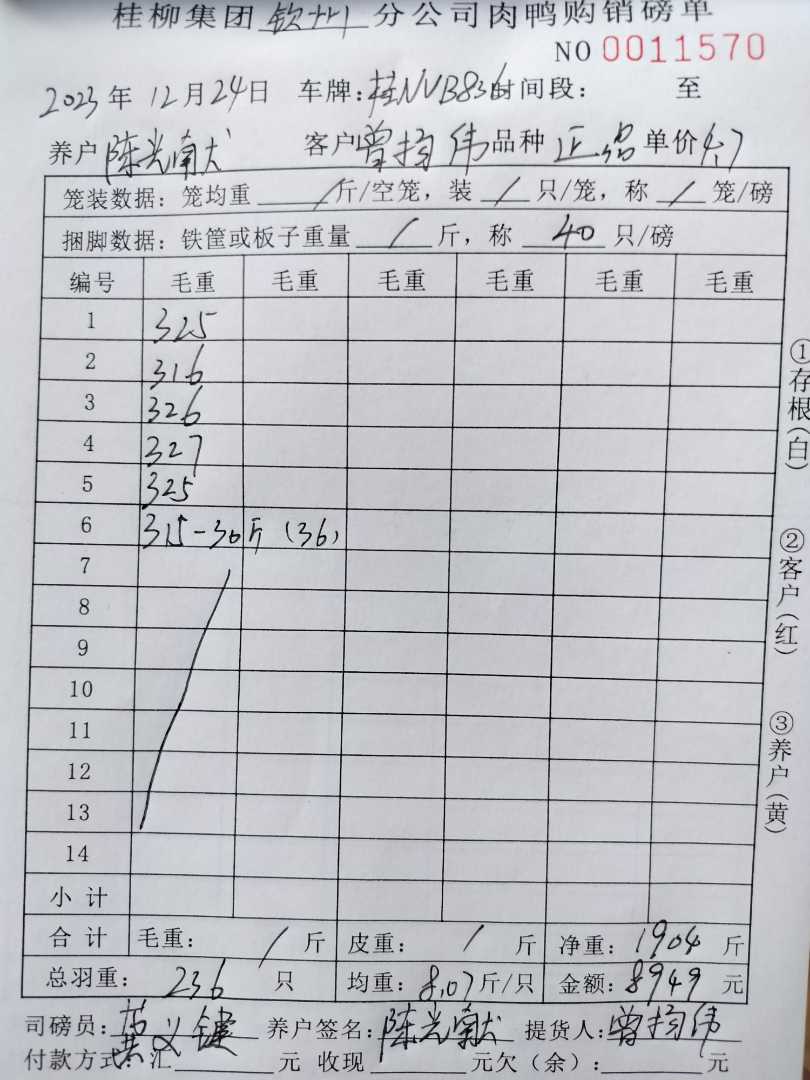 桂柳集团 钦州 分公司肉鸭购销磅单
NO 0011570
2023年 12月24日 车牌:桂NVB836 时间段: 至
养户 陈光献 客户 曾扬伟 品种 正常 单价 4.7
笼装数据: 笼均重 / 斤/空笼, 装 / 只/笼, 称 / 笼/磅
捆脚数据: 铁筐或板子重量 / 斤, 称 40 只/磅
编号 毛重 毛重 毛重 毛重 毛重 毛重
1 325
2 316
3 326
4 327
5 325
6 315-30斤 (36)
7
8
9
10
11
12
13
14
小计
合计 毛重: / 斤 皮重: / 斤 净重: 1904 斤
总羽重: 236 只 均重: 8.07斤/只 金额: 8949 元
司磅员: 黄义键 养户签名: 陈光献 提货人: 曾扬伟
付款方式: 汇 元 收现 元欠(余): 元
①存根(白)
②客户(红)
③养户(黄)